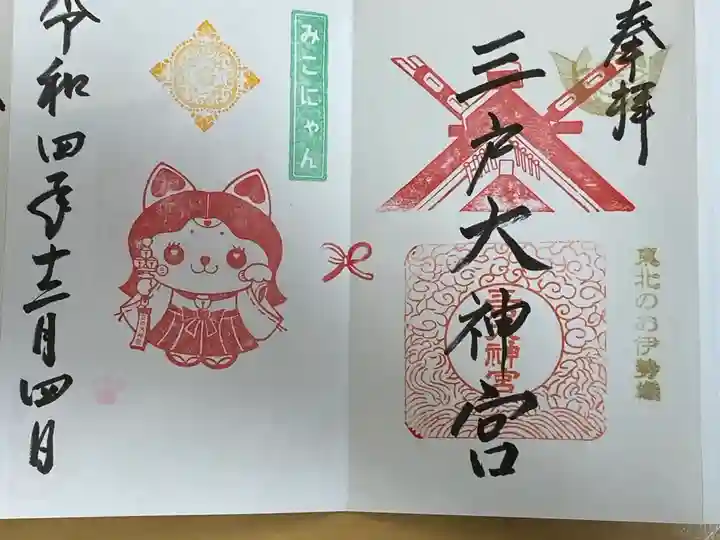 奉拝
三戸大神宮
東北のお伊勢様
みこにゃん
令和四年十二月四日